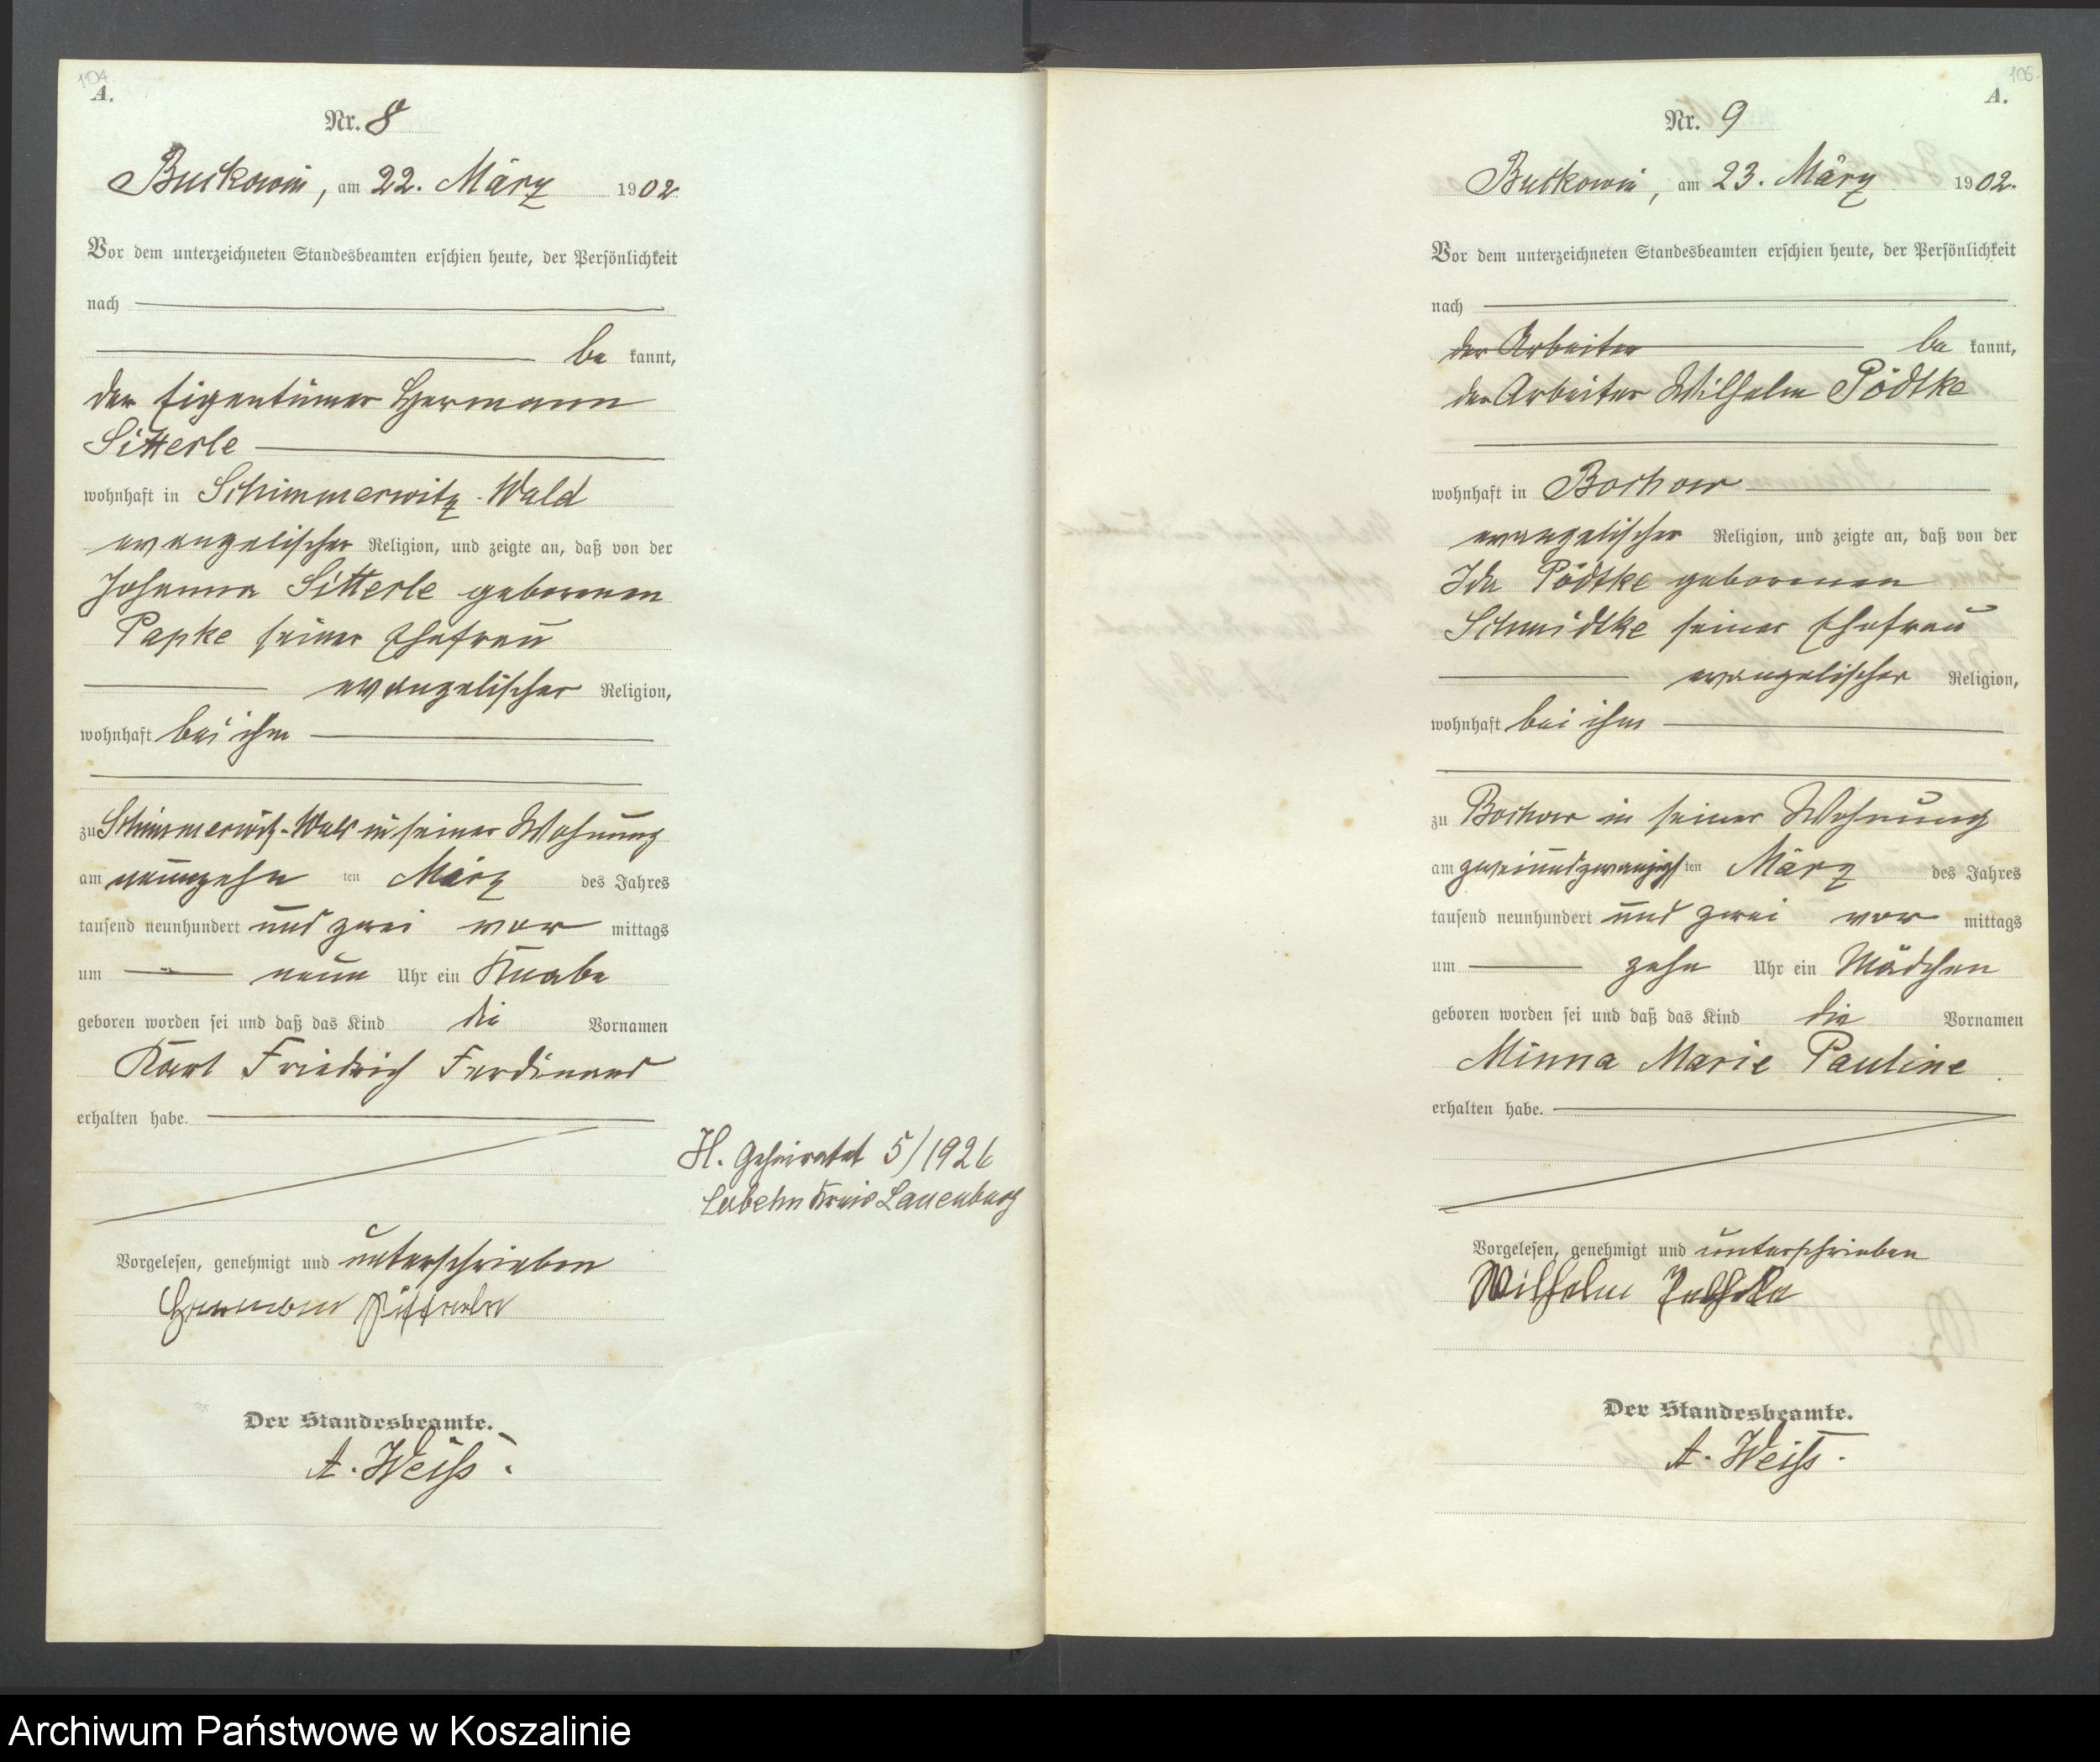 104.
A.
Nr. 8
Buckowin, am 22. März 1902
Vor dem unterzeichneten Standesbeamten erschien heute, der Persönlichkeit
nach
be kannt,
der Eigentümer Hermann
Sitterle
wohnhaft in Schimmerwitz-Wald
evangelischer Religion, und zeigte an, daß von der
Johanna Sitterle geborenen
Papke seiner Ehefrau
evangelischer Religion,
wohnhaft bei ihm
zu Schimmerwitz-Wald in seiner Wohnung
am neunzehn ten März des Jahres
tausend neunhundert und zwei vor mittags
um neun Uhr ein Knabe
geboren worden sei und daß das Kind die Vornamen
Karl Friedrich Ferdinand
erhalten habe.
H. Geheiratet 5/1926
Labehn Kreis Lauenburg
Vorgelesen, genehmigt und unterschrieben
Hermann Sitterle
Der Standesbeamte.
A. Weiß.
105.
A.
Nr. 9
Buckowin, am 23. März 1902.
Vor dem unterzeichneten Standesbeamten erschien heute, der Persönlichkeit
nach
der Arbeiter be kannt,
der Arbeiter Wilhelm Pödtke
wohnhaft in Bochow
evangelischer Religion, und zeigte an, daß von der
Ida Pödtke geborenen
Schmidtke seiner Ehefrau
evangelischer Religion,
wohnhaft bei ihm
zu Bochow in seiner Wohnung
am zweiundzwanzigs ten März des Jahres
tausend neunhundert und zwei vor mittags
um zehn Uhr ein Mädchen
geboren worden sei und daß das Kind die Vornamen
Minna Marie Pauline
erhalten habe.
Vorgelesen, genehmigt und unterschrieben
Wilhelm
Der Standesbeamte.
A. Weiß.
Archiwum Państwowe w Koszalinie